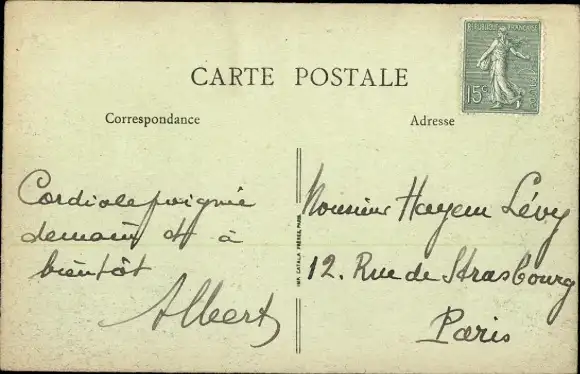 REPUBLIQUE FRANÇAISE
15c
CARTE POSTALE
Correspondance
Adresse
Cordiale poignée
demain et à
bientôt
Albert
IMP. CATALA FRÈRES, PARIS
Monsieur Hayem Lévy
12. Rue de Strasbourg
Paris